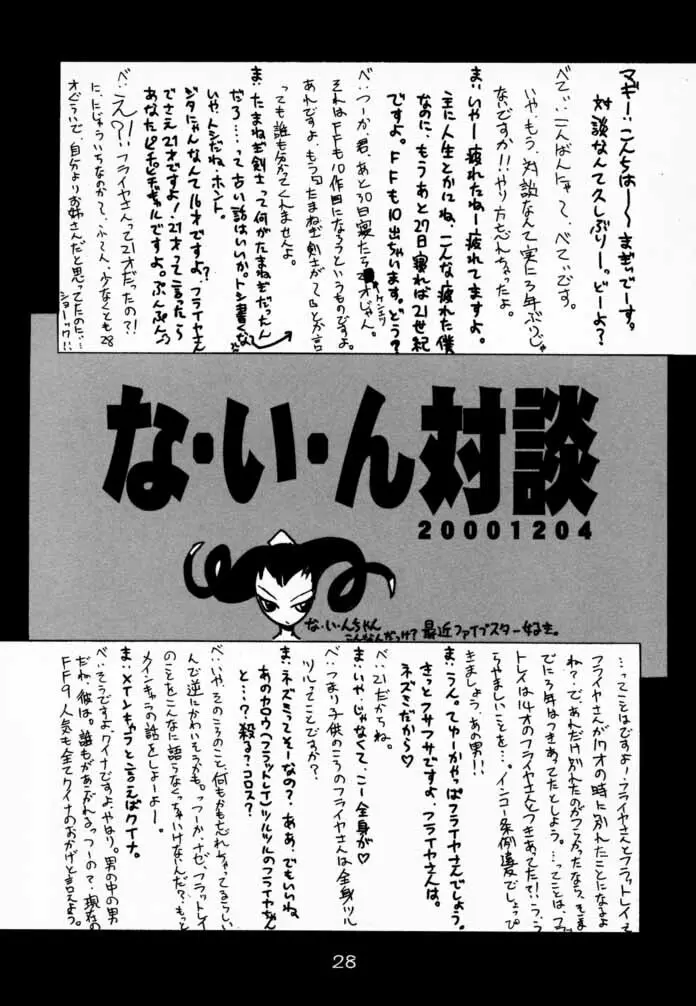 マギー:こんちはー〜まぎぃでーす。
対談なんて久しぶりーっ。どーよ?
べてぃ:こんばんにゃて、べてぃです。
いや、もう、対談なんて実に3年ぶりじゃ
ないですか!!やり方忘れちゃったよ。
ま:いやー疲れたねー疲れてますよ。
主に人生とかにね、こんな疲れた僕
なのに、もうあと27日寝れば21世紀
ですよ。FFも10出ちゃいます。どう?
べ:つーか、君、あと30日寝たら
オじゃん。
ケンエツ
それはFFも10作目になろうというものですよ。
あれですよ、もう
たまねぎ剣士がてとか言
っても誰も分かってくれませんよ。
ま:たまねぎ剣士って何がたまねぎだったん
だろ…って古い話はいいか。トシ書くな
いや、トシだね、ホント。
ジタにゃんなんて16才ですよ?フライヤさん
でさえ21才ですよ!21才って言ったら
あなたピチピチギャルですよ。ぷんぷん。
べ:え?!フライヤさんって21才だったの?!
に、にじゅういちなのかて、ふーん、少なくとも28
オぐらいで、自分よりお姉さんだと思ってたのた…
ショーック!!
な・い・ん対談
20001204
な・い・んちゃん
こんなんだっけ?
最近ファイブスター好き。
…ってことはですよ!フライヤさんとフラットレイって
フライヤさんが17才の時に別れたことになるよ
ね?で、あれだけ別れたのがつらかったなら、そまま
でに3年はつきあってたとしよう。…ってことは、フラ
トレイは14才のフライヤさんとつきあってた?!う、う
らやましいことを…。インコー条例違反でしょっぴ
きましょう、あの男!!
ま:うん。てゆーかやっぱフライヤさんでしょう。
きっとフサフサですよ、フライヤさんは。
ネズミだから♡
べ:21だからね。
ま:いや、じゃなくて、こー全身が♡
べ:つまり子供のころのフライヤさんは全身ツル
ツルってことですか?
ま:ネズミってそーなの?ああ、でもいいね
あのカロウ(フラットレイ)ツルツルのフライヤちゃん
と…?殺る?コロス?
べ:いや、そのころのこと、何もかも忘れちゃってるらしい
んで逆にかわいそうかも。っつーか、ナゼ、フラットレイ
のことをこんなに語らなくっちゃいけないんだ?もっと
メインキャラの話をしょーよー。
ま:メインキャラと言えばクイナ。
べ:そうですよ、クイナですよ、やはり。男の中の男
だね、彼は。誰もがあこがれるっつーので、現在の
FF9人気も全てクイナのおかげと言えよう。
28